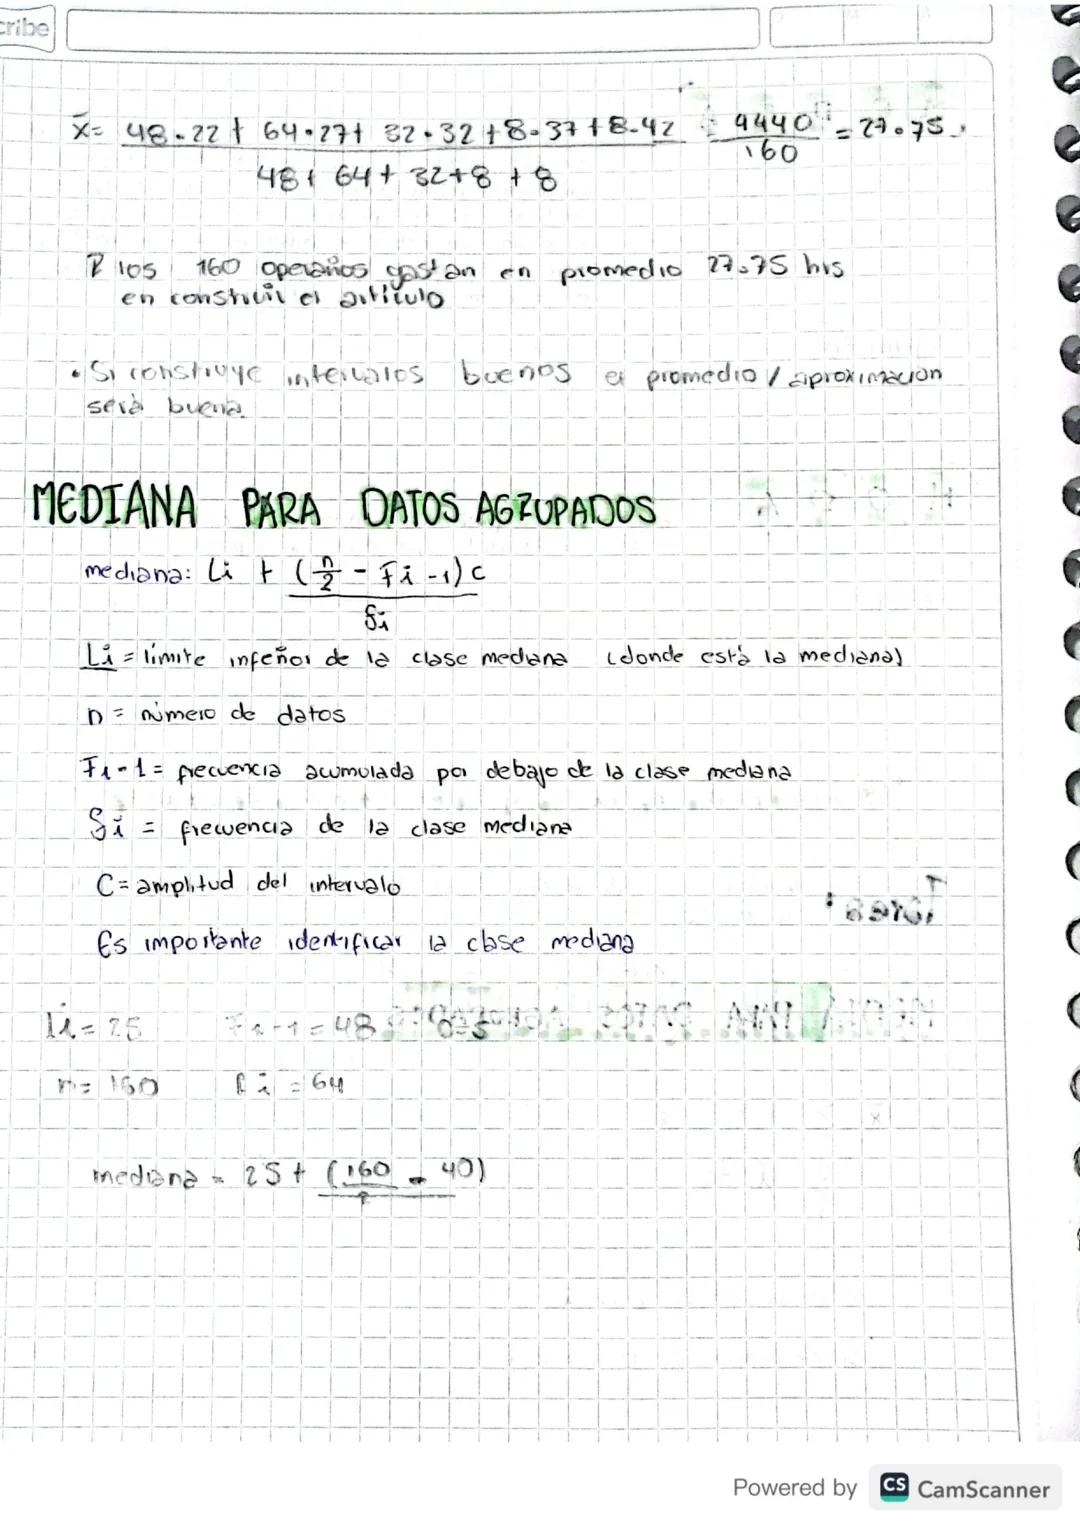 cribe
x̄= 48·22+ 64·27+ 32·32+8·37+8·42 = 4440 = 27.75
48+ 64+ 32+8 +8 160
los 160 operarios gastan en promedio 27.75 hrs
en construir el artículo
• Si construye intervalos buenos el promedio / aproximación
será buena
MEDIANA PARA DATOS AGRUPADOS
mediana: Li + (n/2 - Fi-1)c
fi
Li = límite inferior de la clase mediana (donde está la mediana)
n = número de datos
Fi-1= frecuencia acumulada por debajo de la clase mediana
fi = frecuencia de la clase mediana
C= amplitud del intervalo
Es importante identificar la clase mediana
li= 25 Fi-1 = 48 c=5
n= 160 fi = 64
mediana = 25+ (160 - 40)
2
Powered by CS CamScanner